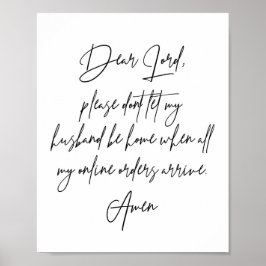 Dear Lord,
please dont let my
husband be home when all
my online orders arrive.
Amen